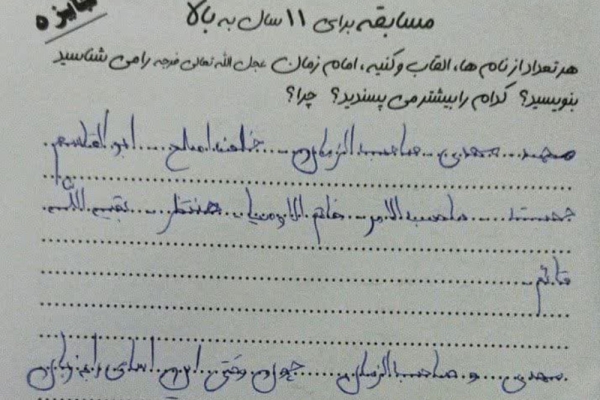 جایزه
مسابقه برای ۱۱ سال به بالا
هر تعداد از نام ها، القاب و کنیه، امام زمان عجل الله تعالی فرجه را می شناسید
بنویسید؟ کدام را بیشتر می پسندید؟ چرا؟
محمد مهدی صاحب الزمان خلف صالح ابوالقاسم
حجت صاحب الامر خاتم الاوصیا منتظر بقیه الله
قائم
مهدی و صاحب الزمان چون وقتی این اسامی را به زبان